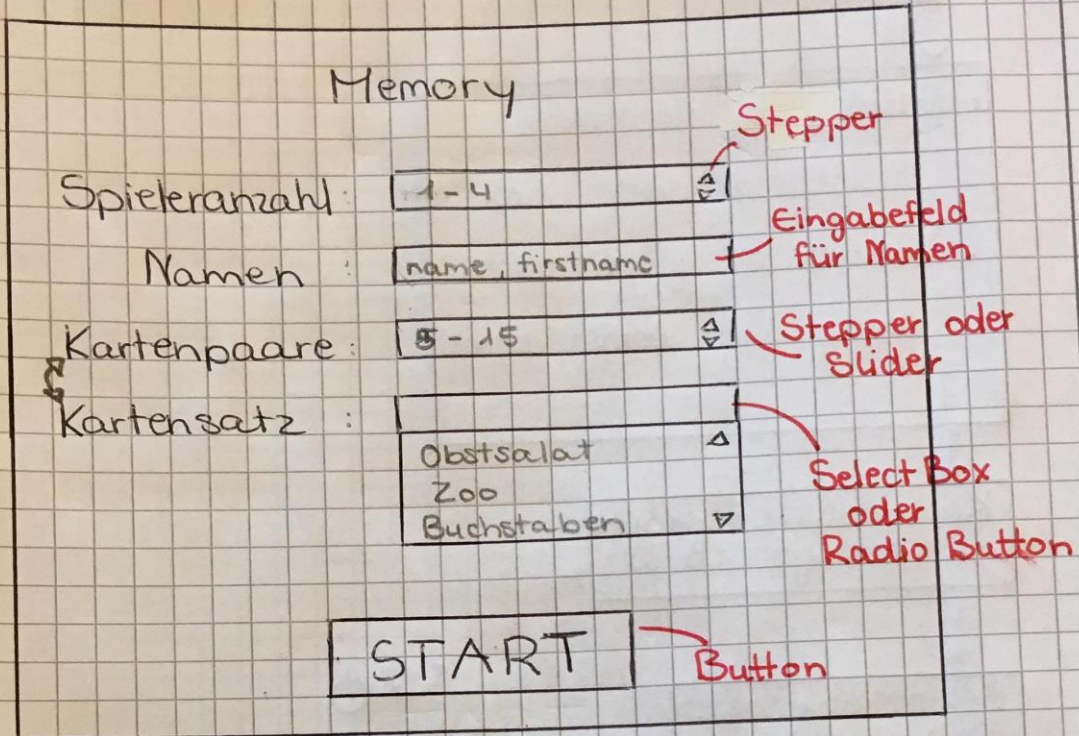 Memory
Stepper
Spieleranzahl: 1-4
Eingabefeld
für Namen
Namen : name, firstname
Kartenpaare: 5-15
Stepper oder
Slider
Kartensatz :
Obstsalat
Zoo
Buchstaben
Select Box
oder
Radio Button
START
Button